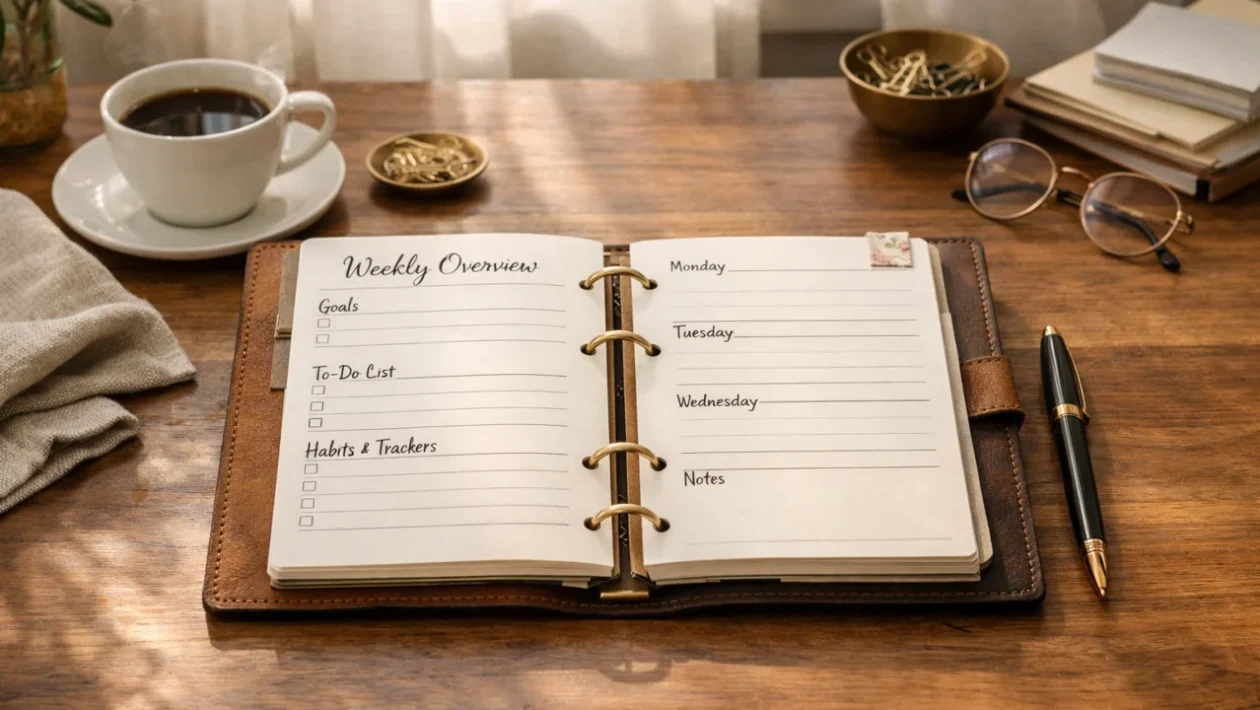 Weekly Overview
Goals
To-Do List
Habits & Trackers
Monday
Tuesday
Wednesday
Notes